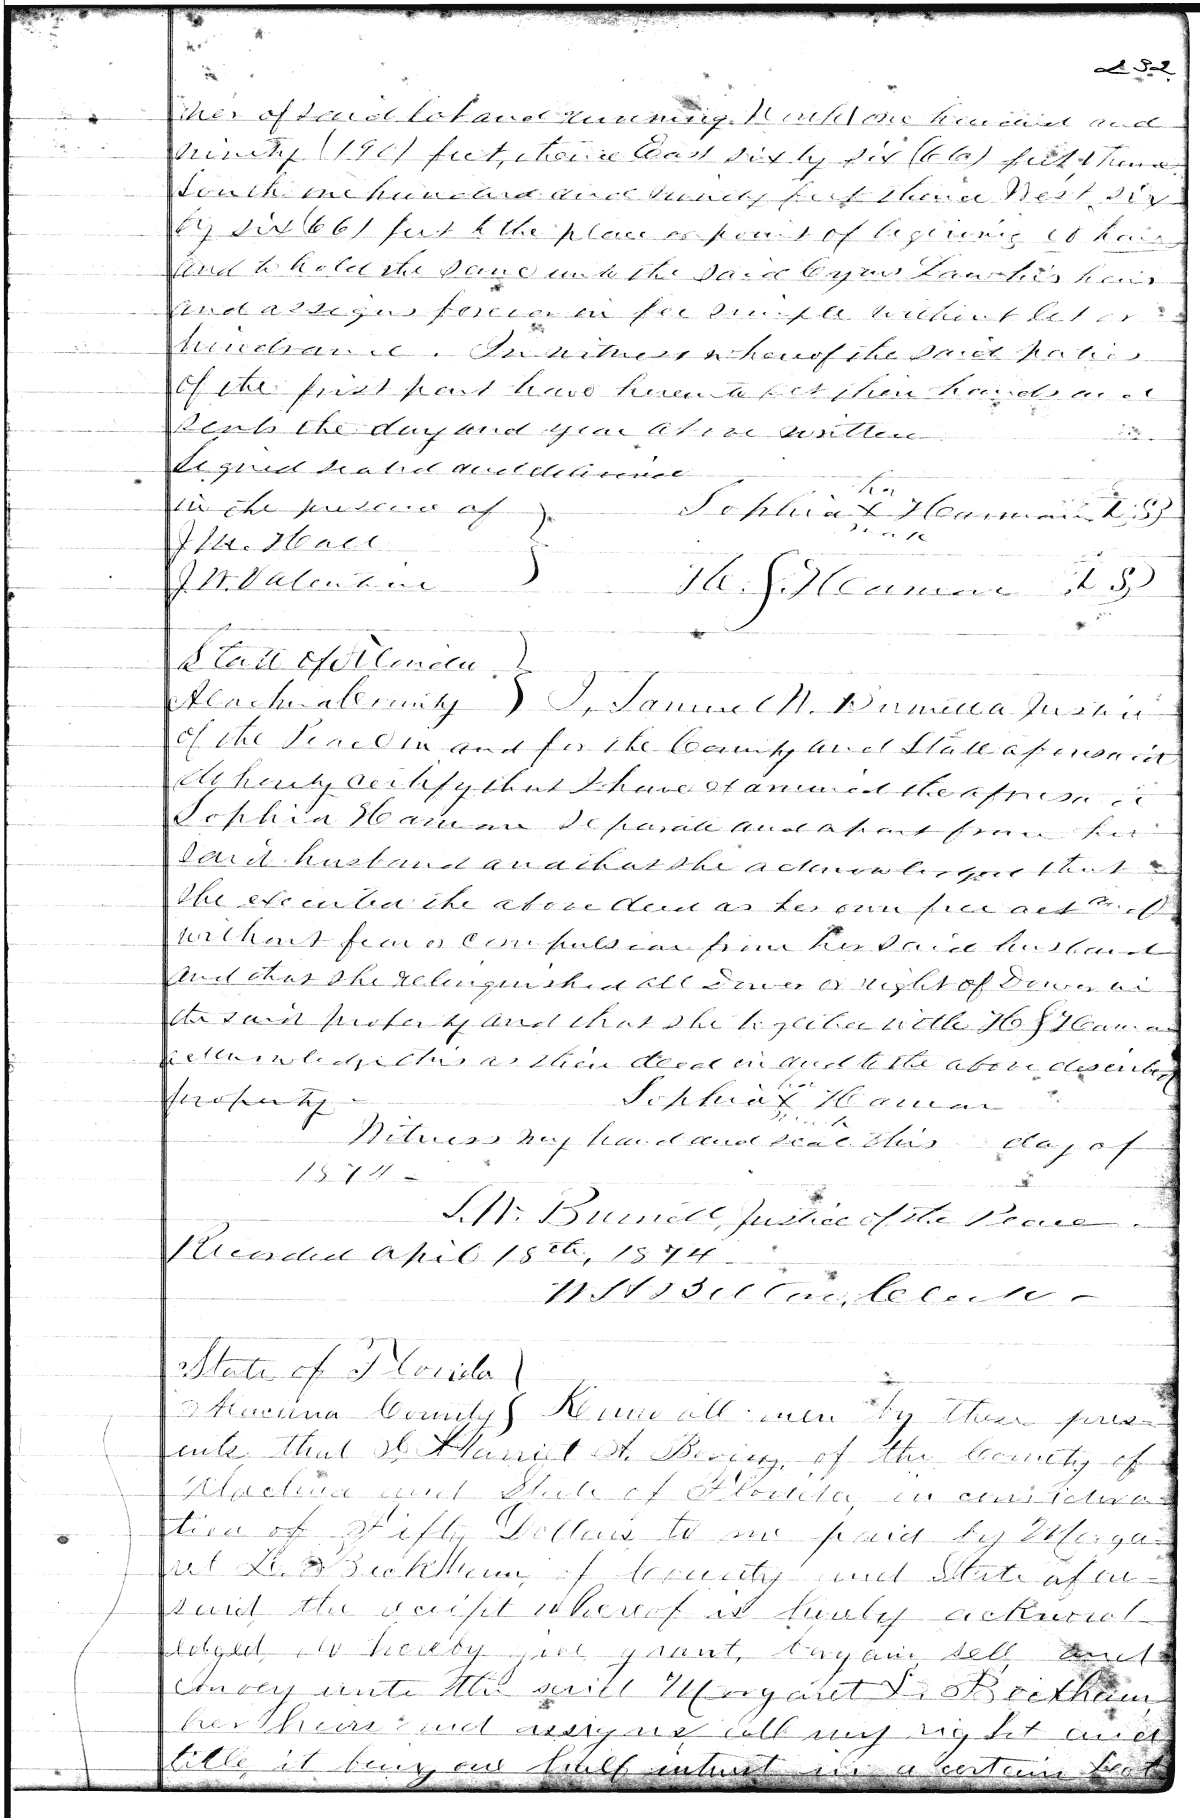 232
ner of said lot and running North one hundred and
ninety (190) feet, thence East sixty six (66) feet thence
South one hundred and ninety feet thence West six
ty six (66) feet to the place or point of begining to have
and to hold the same unto the said Cyrus Law his heirs
and assigns forever in fee simple without let or
hindrance. In witness whereof the said parties
of the first part have hereunto set their hands and
seals the day and year above written
Signed sealed and delivered
in the presence of } Sophia her X mark Haman L S
J. M. Hall
J. W. Valentine } H. J. Haman L S
State of Florida }
Alachua County } I, Samuel W. Burnett a Justice
of the Peace in and for the County and State aforesaid
do hereby certify that I have examined the aforesaid
Sophia Haman separate and apart from her
said husband and that she acknowledged that
she executed the above deed as her own free act and
without fear or compulsion from her said husband
and that she relinquished all Dower or right of Dower in
the said property and that she together with H J Haman
acknowledge this as their deed in and to the above described
property Sophia her X mark Haman
Witness my hand and seal this day of
1874 -
S. W. Burnett, Justice of the Peace.
Recorded April 18th, 1874
Clerk -
State of Florida }
Alachua County } Know all men by these pres-
ents that I, A. of the County of
Alachua and State of Florida, in considera-
tion of Fifty Dollars to me paid by Marga-
ret L. Beckham, of County and State afore-
said, the receipt whereof is hereby acknowl-
edged, do hereby give, grant, bargain, sell and
convey unto the said Margaret L. Beckham,
her heirs and assigns all my right and
title, it being one half interest in a certain Lot